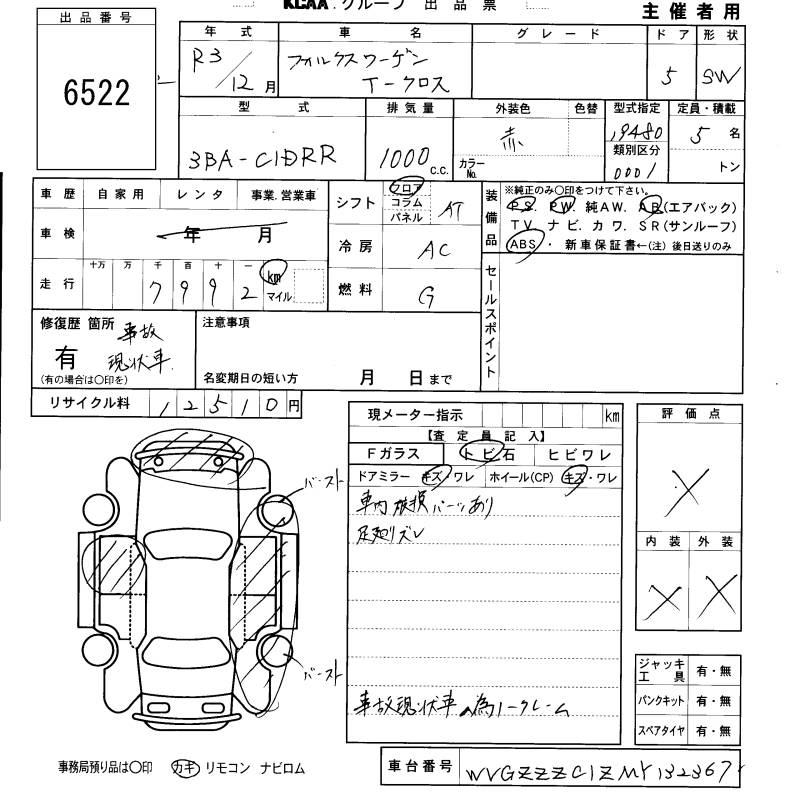 KCAA グループ 出品票
主催者用
出品番号
6522
年式 車名 グレード ドア 形状
R3/12月 フォルクスワーゲン 5 SW
T-クロス
型式 排気量 外装色 色替 型式指定 定員・積載
3BA-C1DRR 1000 C.C. 赤 カラーNo. 19480 5名
類別区分
0001 トン
車歴 自家用 レンタ 事業.営業車
車検 年 月
走行 十万 万 千 百 十 一
7992 km マイル
シフト フロア コラム パネル AT
冷房 AC
燃料 G
装備品 ※純正のみ〇印をつけて下さい。
PS. PW. 純AW. AB(エアバック)
TV. ナビ. カワ. SR(サンルーフ)
ABS・ 新車保証書←(注)後日送りのみ
セールスポイント
修復歴 箇所 事故
有 現状車.
(有の場合は〇印を)
注意事項
名変期日の短い方 月 日まで
リサイクル料 12510円
現メーター指示 km
【査定員記入】
Fガラス トビ石 ヒビワレ
ドアミラー キズ・ワレ ホイール(CP) キズ・ワレ
車内破損パーツあり
足廻リズレ
事故現状車の為ノークレーム
バースト
バースト
評価点
X
内装 外装
X X
ジャッキ工具 有・無
パンクキット 有・無
スペアタイヤ 有・無
事務局預り品は〇印 カギ リモコン ナビロム
車台番号 WVGZZZC1ZMY132367